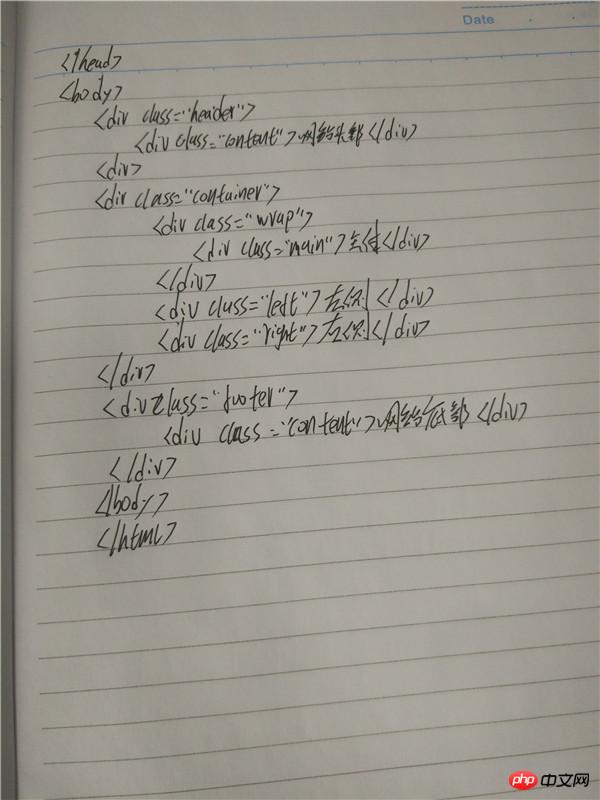 Date
</head>
<body>
<div class="header">
<div class="content">网站头部</div>
<div>
<div class="container">
<div class="wrap">
<div class="main">主体</div>
</div>
<div class="left">左侧</div>
<div class="right">右侧</div>
</div>
<div class="footer">
<div class="content">网站底部</div>
</div>
</body>
</html>
php 中文网